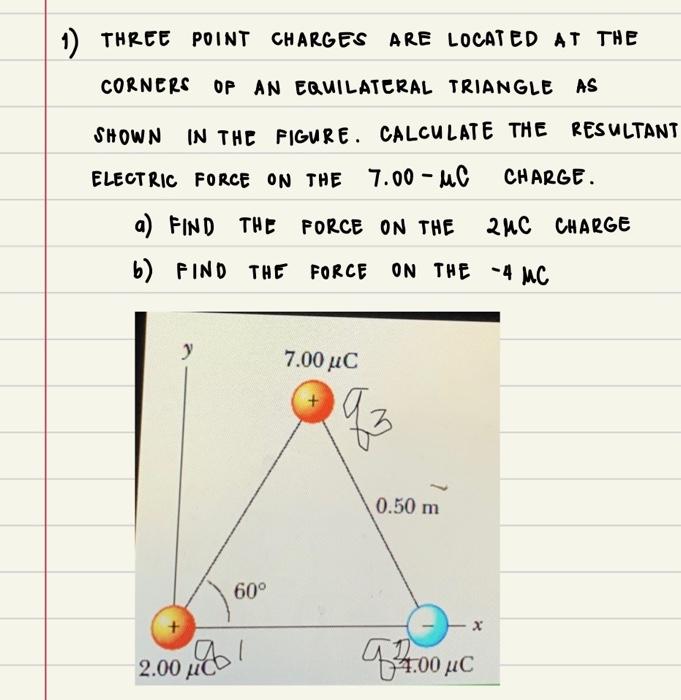 1) THREE POINT CHARGES ARE LOCATED AT THE
CORNERS OF AN EQUILATERAL TRIANGLE AS
SHOWN IN THE FIGURE. CALCULATE THE RESULTANT
ELECTRIC FORCE ON THE 7.00-μC CHARGE.
a) FIND THE FORCE ON THE 2μC CHARGE
b) FIND THE FORCE ON THE -4 μC
y
7.00 μC
+
q3
0.50 m
60°
+
−
x
2.00 μC
q1
q2
-4.00 μC